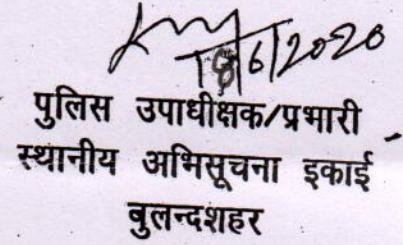 18/6/2020
पुलिस उपाधीक्षक/प्रभारी
स्थानीय अभिसूचना इकाई
बुलन्दशहर